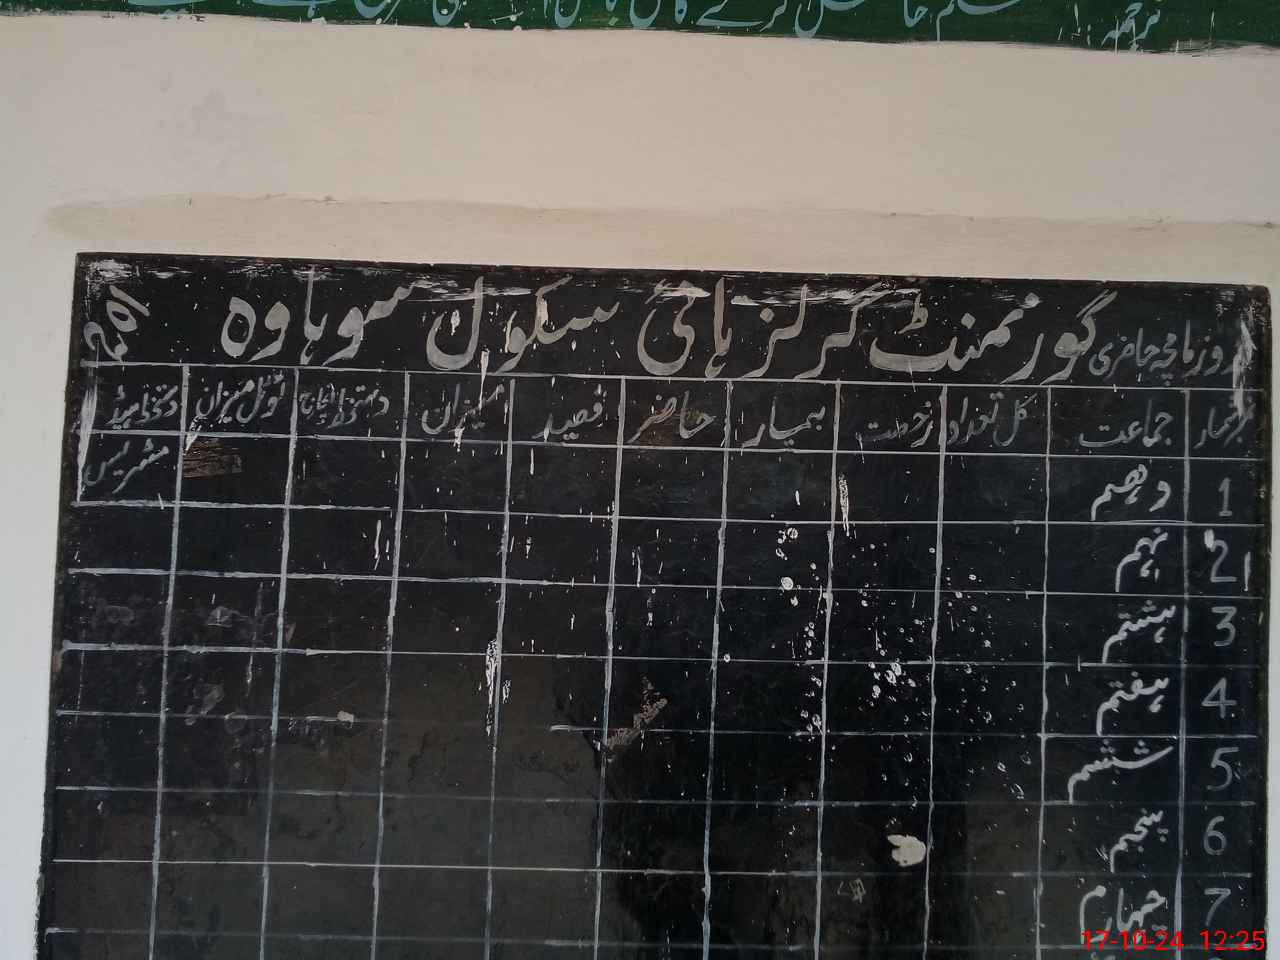 ترجمہ :
روزنامچہ حاضری گورنمنٹ گرلز ہائی سکول سوہاوہ
نمبر شمار جماعت کل تعداد رخصت بیمار حاضر فیصد میزان دستخط انچارج ٹوٹل میزان دستخط ہیڈ مسٹریس
1 دھم
2 نہم
3 ہشتم
4 ہفتم
5 ششم
6 پنجم
7 چہارم
17-10-24 12:25